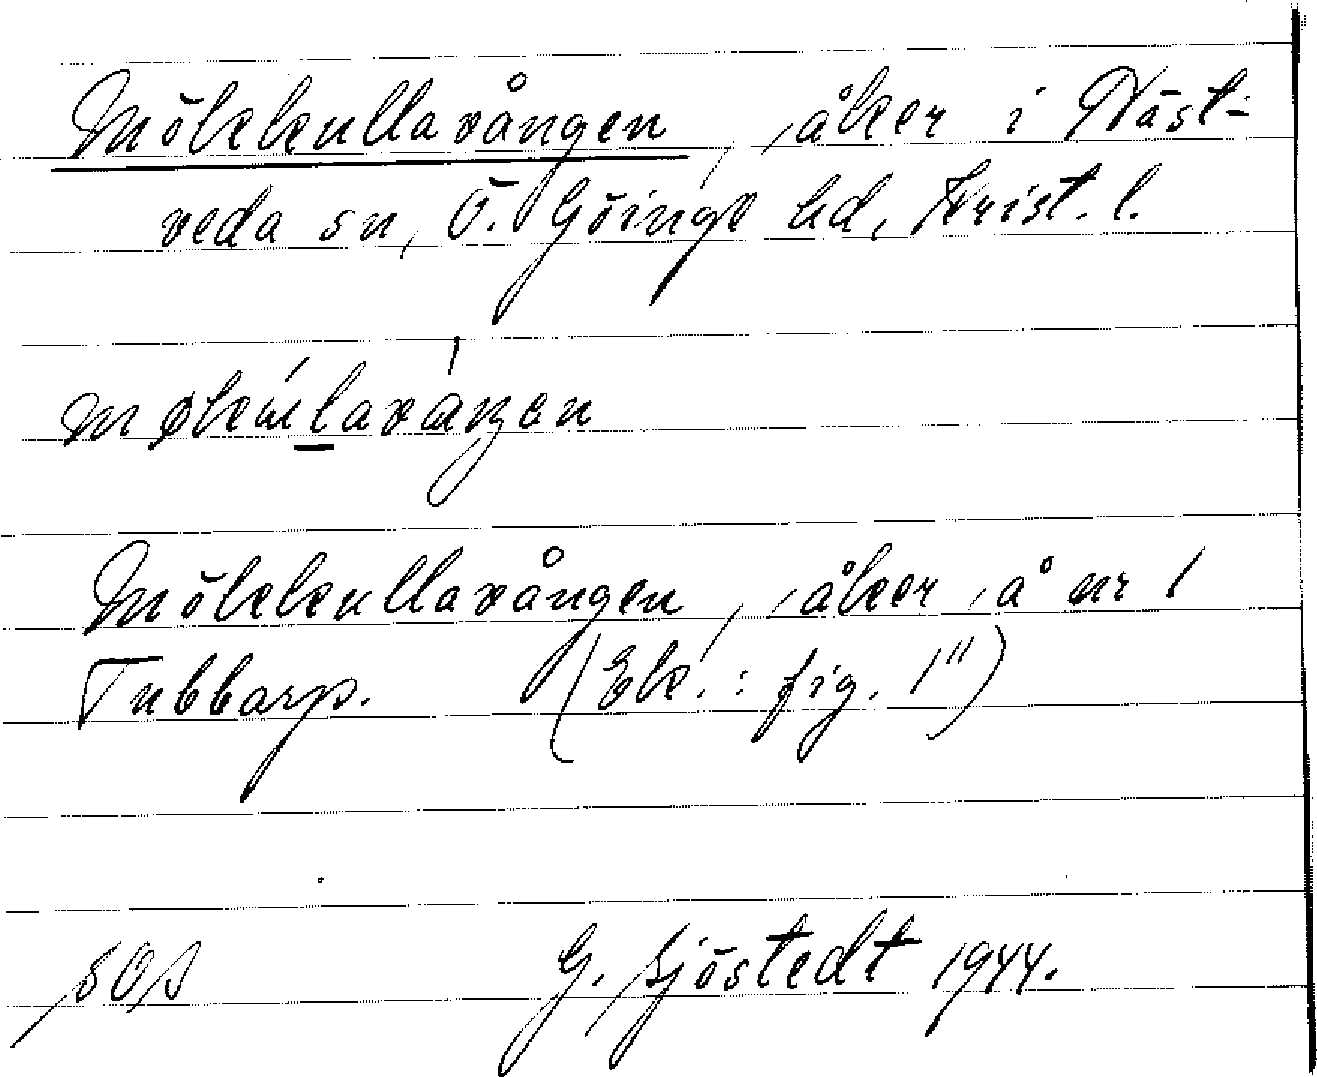 Mölekullavången, åker i Näst-
veda sn, Ö. Göinge hd, Krist. l.
møkúlaváŋen
Mölekullavången, åker å nr 1
Tubbarp. (Ek.: fig. 1")
G. Sjöstedt 1944.